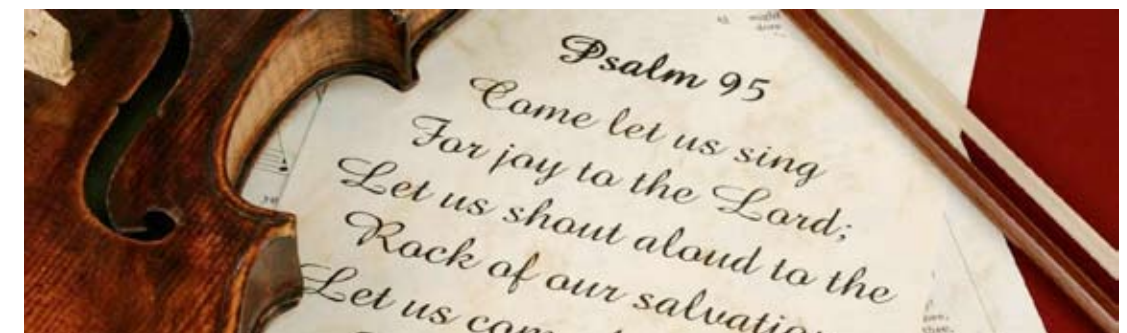 Psalm 95
Come let us sing
For joy to the Lord;
Let us shout aloud to the
Rock of our salvation
Let us com